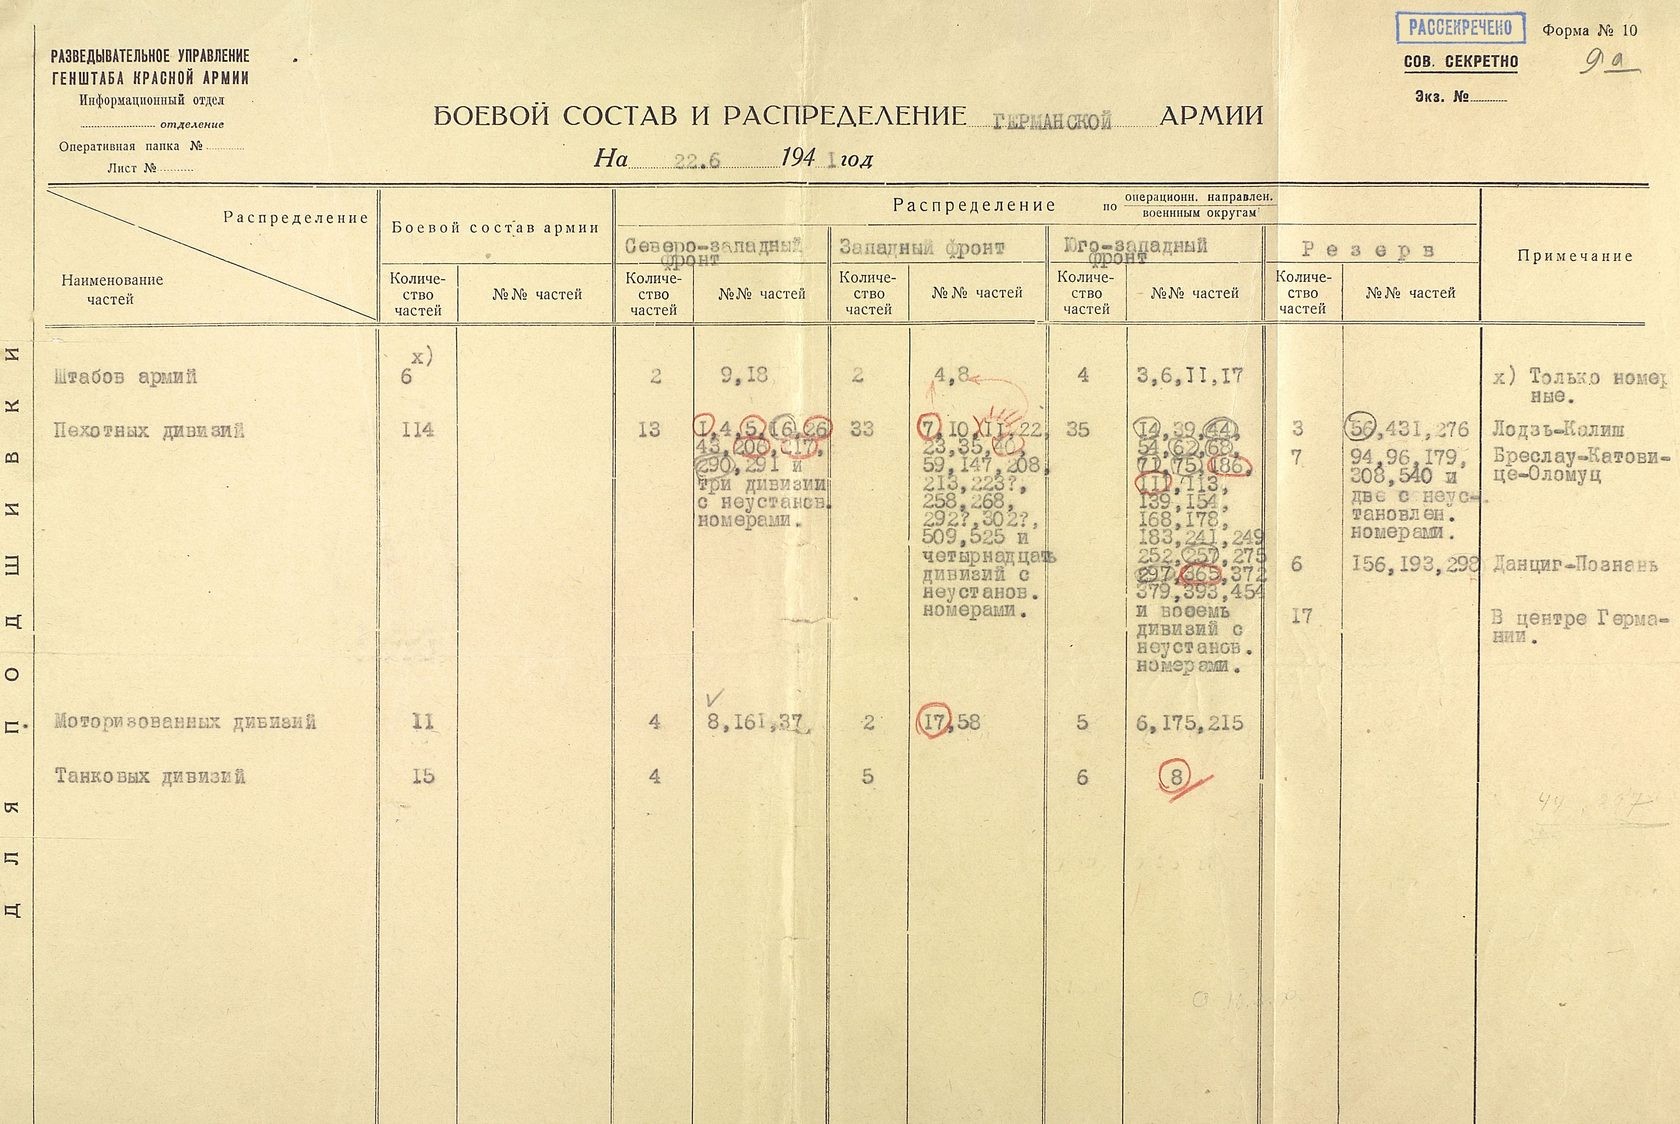 РАССЕКРЕЧЕНО
Форма № 10
СОВ. СЕКРЕТНО
9а
Экз. №
РАЗВЕДЫВАТЕЛЬНОЕ УПРАВЛЕНИЕ
ГЕНШТАБА КРАСНОЙ АРМИИ
Информационный отдел
отделение
Оперативная папка №
Лист №
БОЕВОЙ СОСТАВ И РАСПРЕДЕЛЕНИЕ ГЕРМАНСКОЙ АРМИИ
На 22.6 1941 год
ДЛЯ ПОДШИВКИ
Распределение
Наименование
частей
Боевой состав армии
Распределение по операционн. направлен.
военнным округам
Северо-западный
фронт
Западный фронт
Юго-западный
фронт
Резерв
Примечание
Количе-
ство
частей
№№ частей
Количе-
ство
частей
№№ частей
Количе-
ство
частей
№№ частей
Количе-
ство
частей
№№ частей
Количе-
ство
частей
№№ частей
Штабов армий
х)
6
2
9,18
2
4,8
4
3,6,11,17
х) Только номер
ные.
Пехотных дивизий
114
13
1,4,5,16,26
43,206,217,
290,291 и
три дивизии
с неустанов.
номерами.
33
7,10,11,22,
23,35,
59,147,208,
213,223?,
258,268,
292?,302?,
509,525 и
четырнадцать
дивизий с
неустанов.
номерами.
35
14,39,44,
54,62,68,
71,75,186,
111,113,
139,154,
168,178,
183,241,249
252,257,275
297,365,372
379,393,454
и восемь
дивизий с
неустанов.
номерами.
3
56,431,276
Лодзь-Калиш
7
94,96,179,
308,540 и
две с неус-
тановлен.
номерами.
Бреслау-Катови-
це-Оломуц
6
156,193,298
Данциг-Познань
17
В центре Герма-
нии.
Моторизованных дивизий
11
4
8,161,37
2
17,58
5
6,175,215
Танковых дивизий
15
4
5
6
8